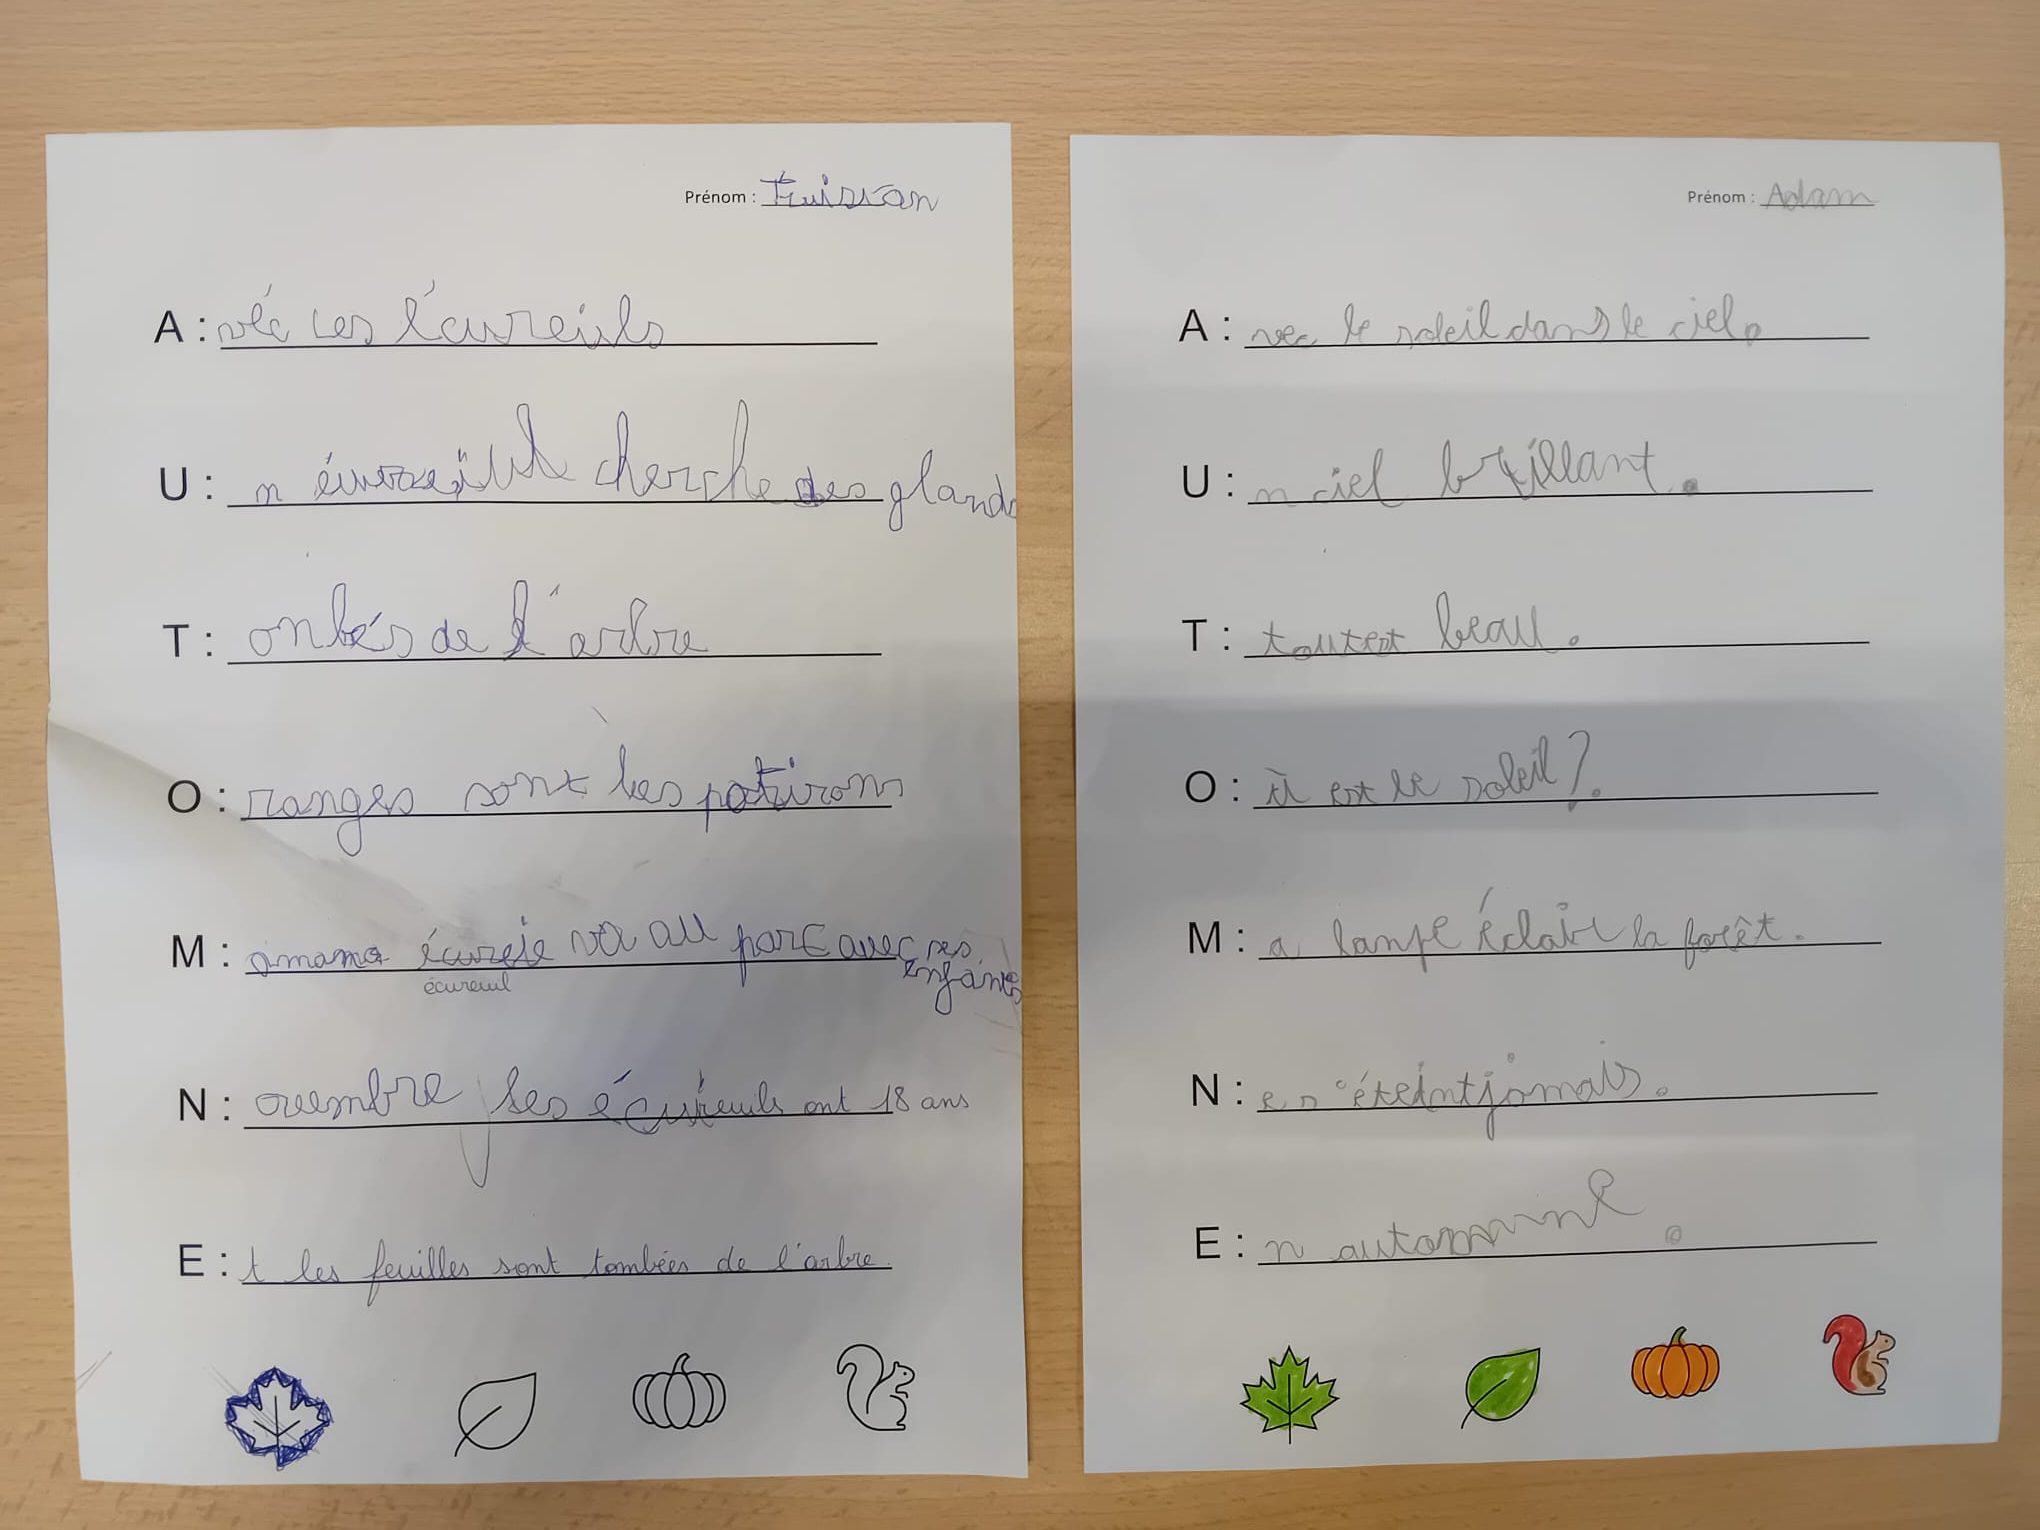 Prénom :
A : véc Les l'éureiuls
U : n cherche des glands
T : onbés de l'arbre
O : ranges sont les potirons
M : amama écureie va au parc avec ses
enfants
écureuil
N : ovembre les écureuils ont 18 ans
E : t les feuilles sont tombées de l'arbre.
Prénom : Adam
A : vec le soleil dans le ciel.
U : n ciel brillant.
T : toutest beau.
O : ù est le soleil ?
M : a lampe éclair la forêt.
N : e s'éteint jamais.
E : n automne.